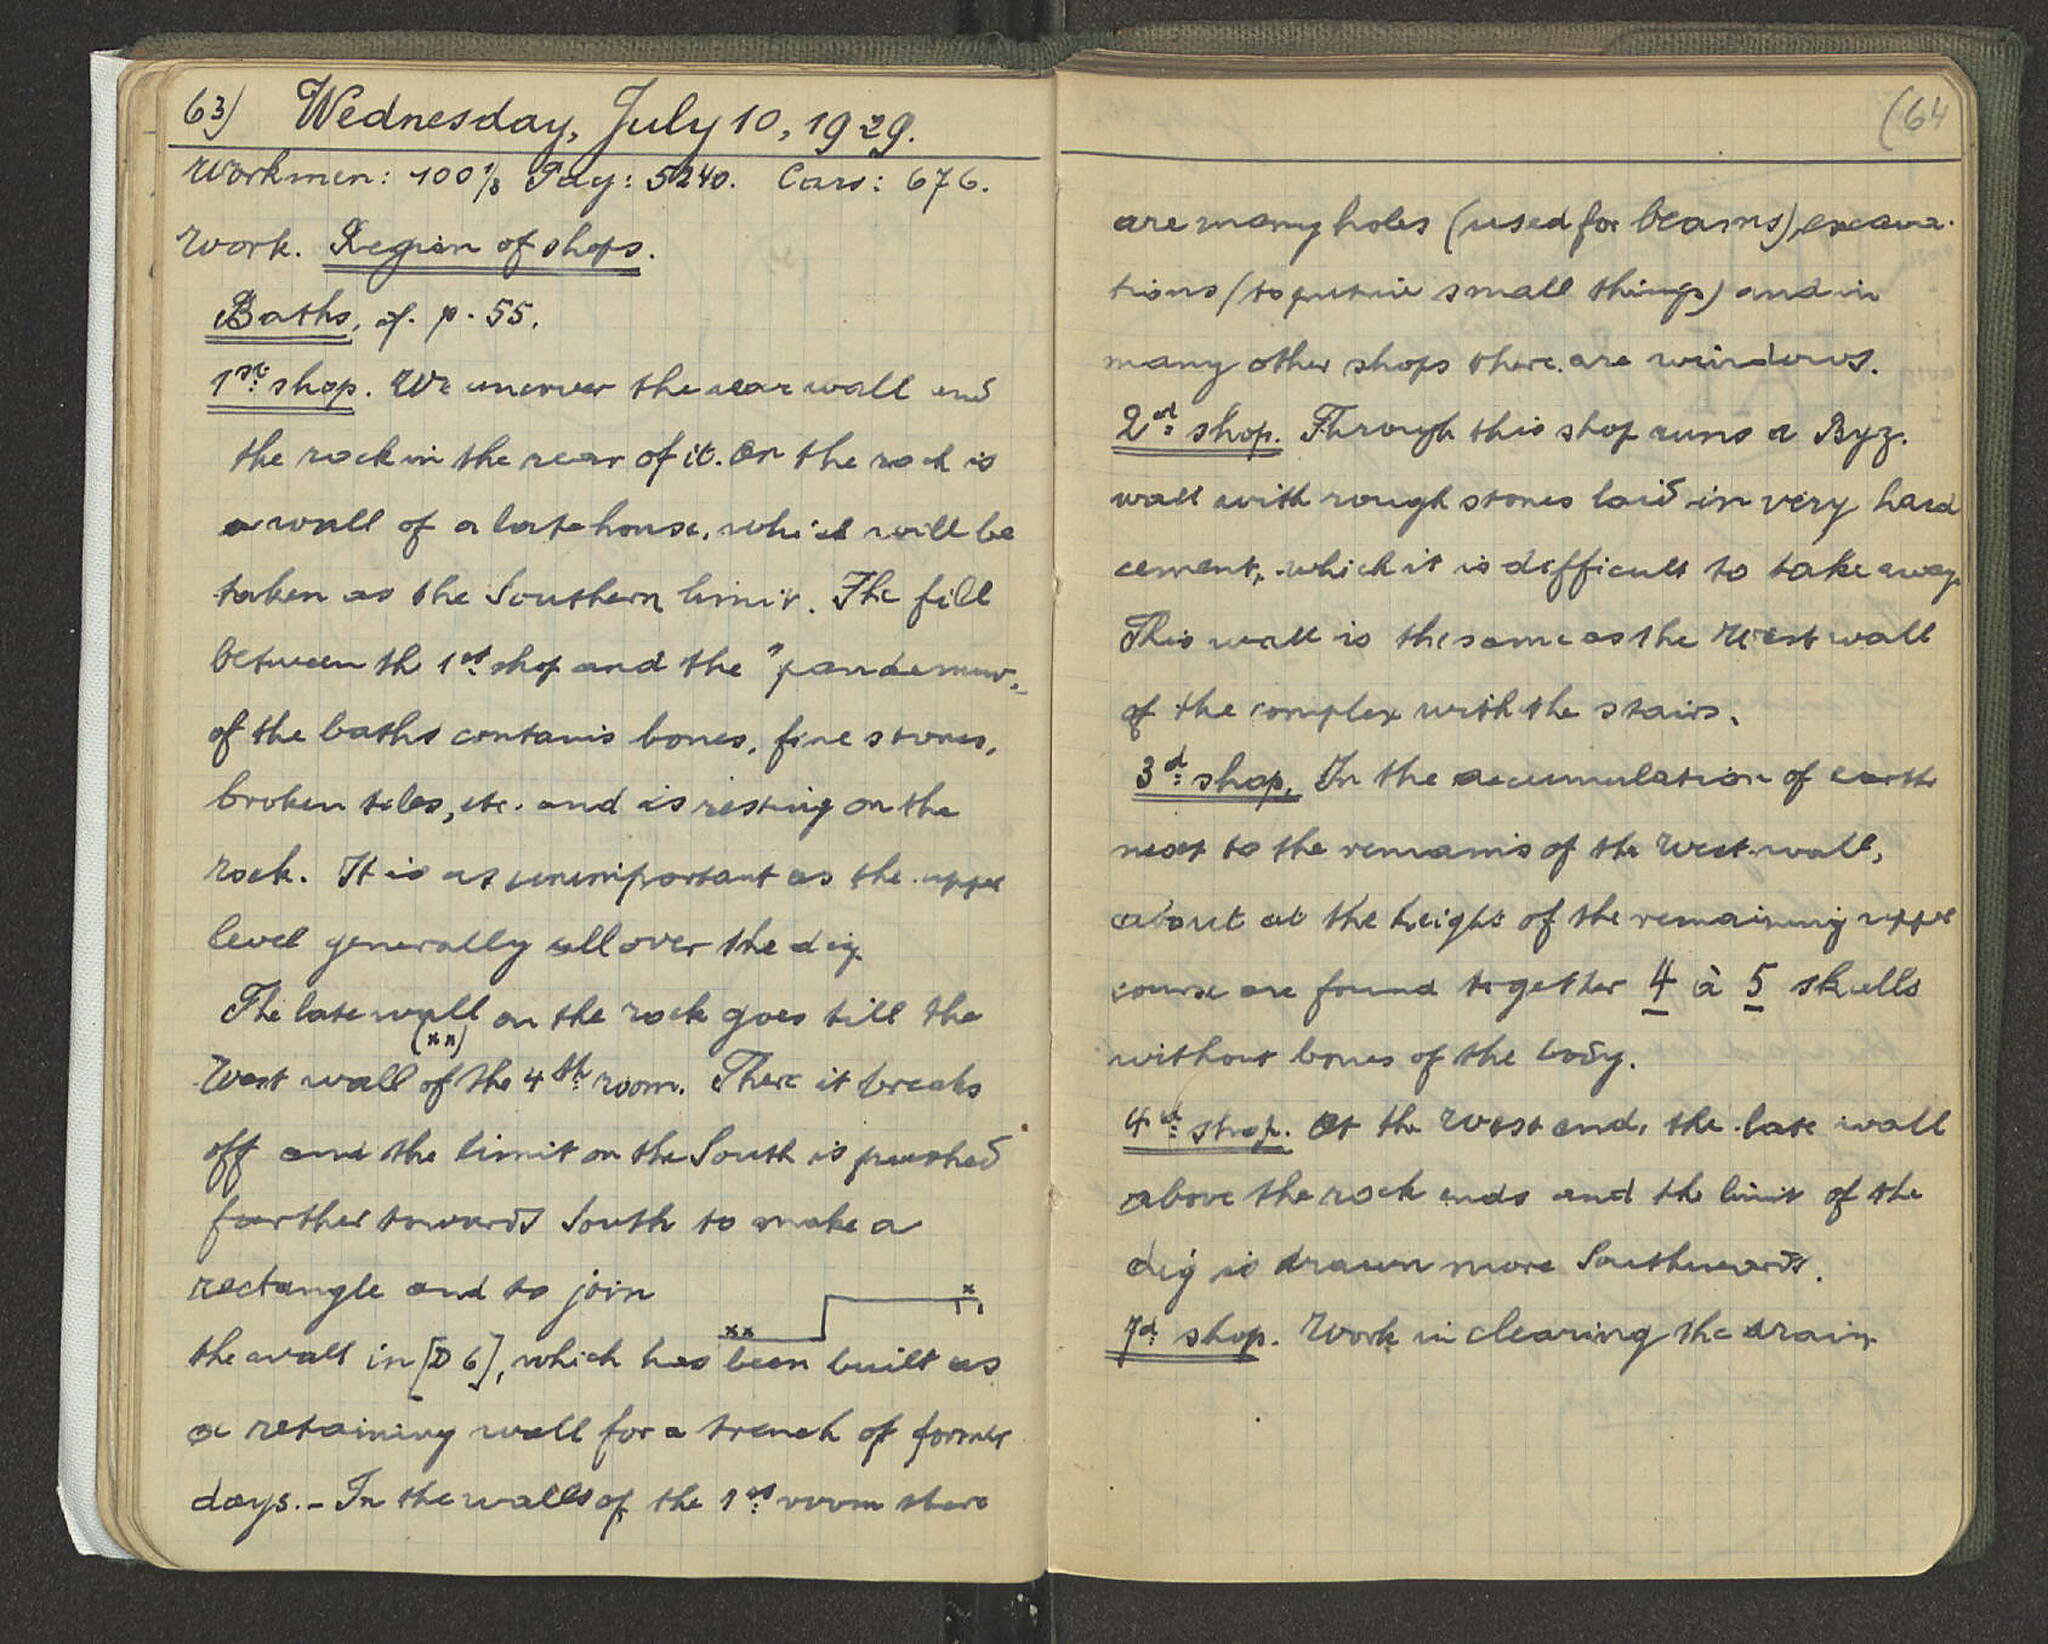 63) Wednesday, July 10, 1929.
Workmen: 100 ⅓ Pay: 5240. Cars: 676.
Work. Region of shops.
Baths, cf. p. 55.
1st shop. We uncover the rear wall and
the rock in the rear of it. On the rock is
a wall of a late house, which will be
taken as the Southern limit. The fill
between th 1st shop and the "
of the baths contains bones, fine stones,
broken tiles, etc. and is resting on the
rock. It is as unimportant as the upper
level generally all over the dig.
The late wall on the rock goes till the
(xx)
West wall of the 4th room. There it breaks
off and the limit on the South is pushed
further towards South to make a
rectangle and to join
x
xx
the wall in [D 6], which has been built as
a retaining wall for a trench of former
days. - In the walls of the 1st room there
(64
are many holes (used for beams), excava-
tions (to put in small things) and in
many other shops there are windows.
2d shop. Through this shop runs a Byz.
wall with rough stones laid in very hard
cement, which it is difficult to take away.
This wall is the same as the West wall
of the complex with the stairs.
3d shop. In the accumulation of earth
next to the remains of the West wall,
about at the height of the remaining upper
course are found together 4 à 5 skulls
without bones of the body.
4d shop. At the West end, the late wall
above the rock ends and the limit of the
dig is drawn more Southwards.
7d shop. Work in clearing the drain